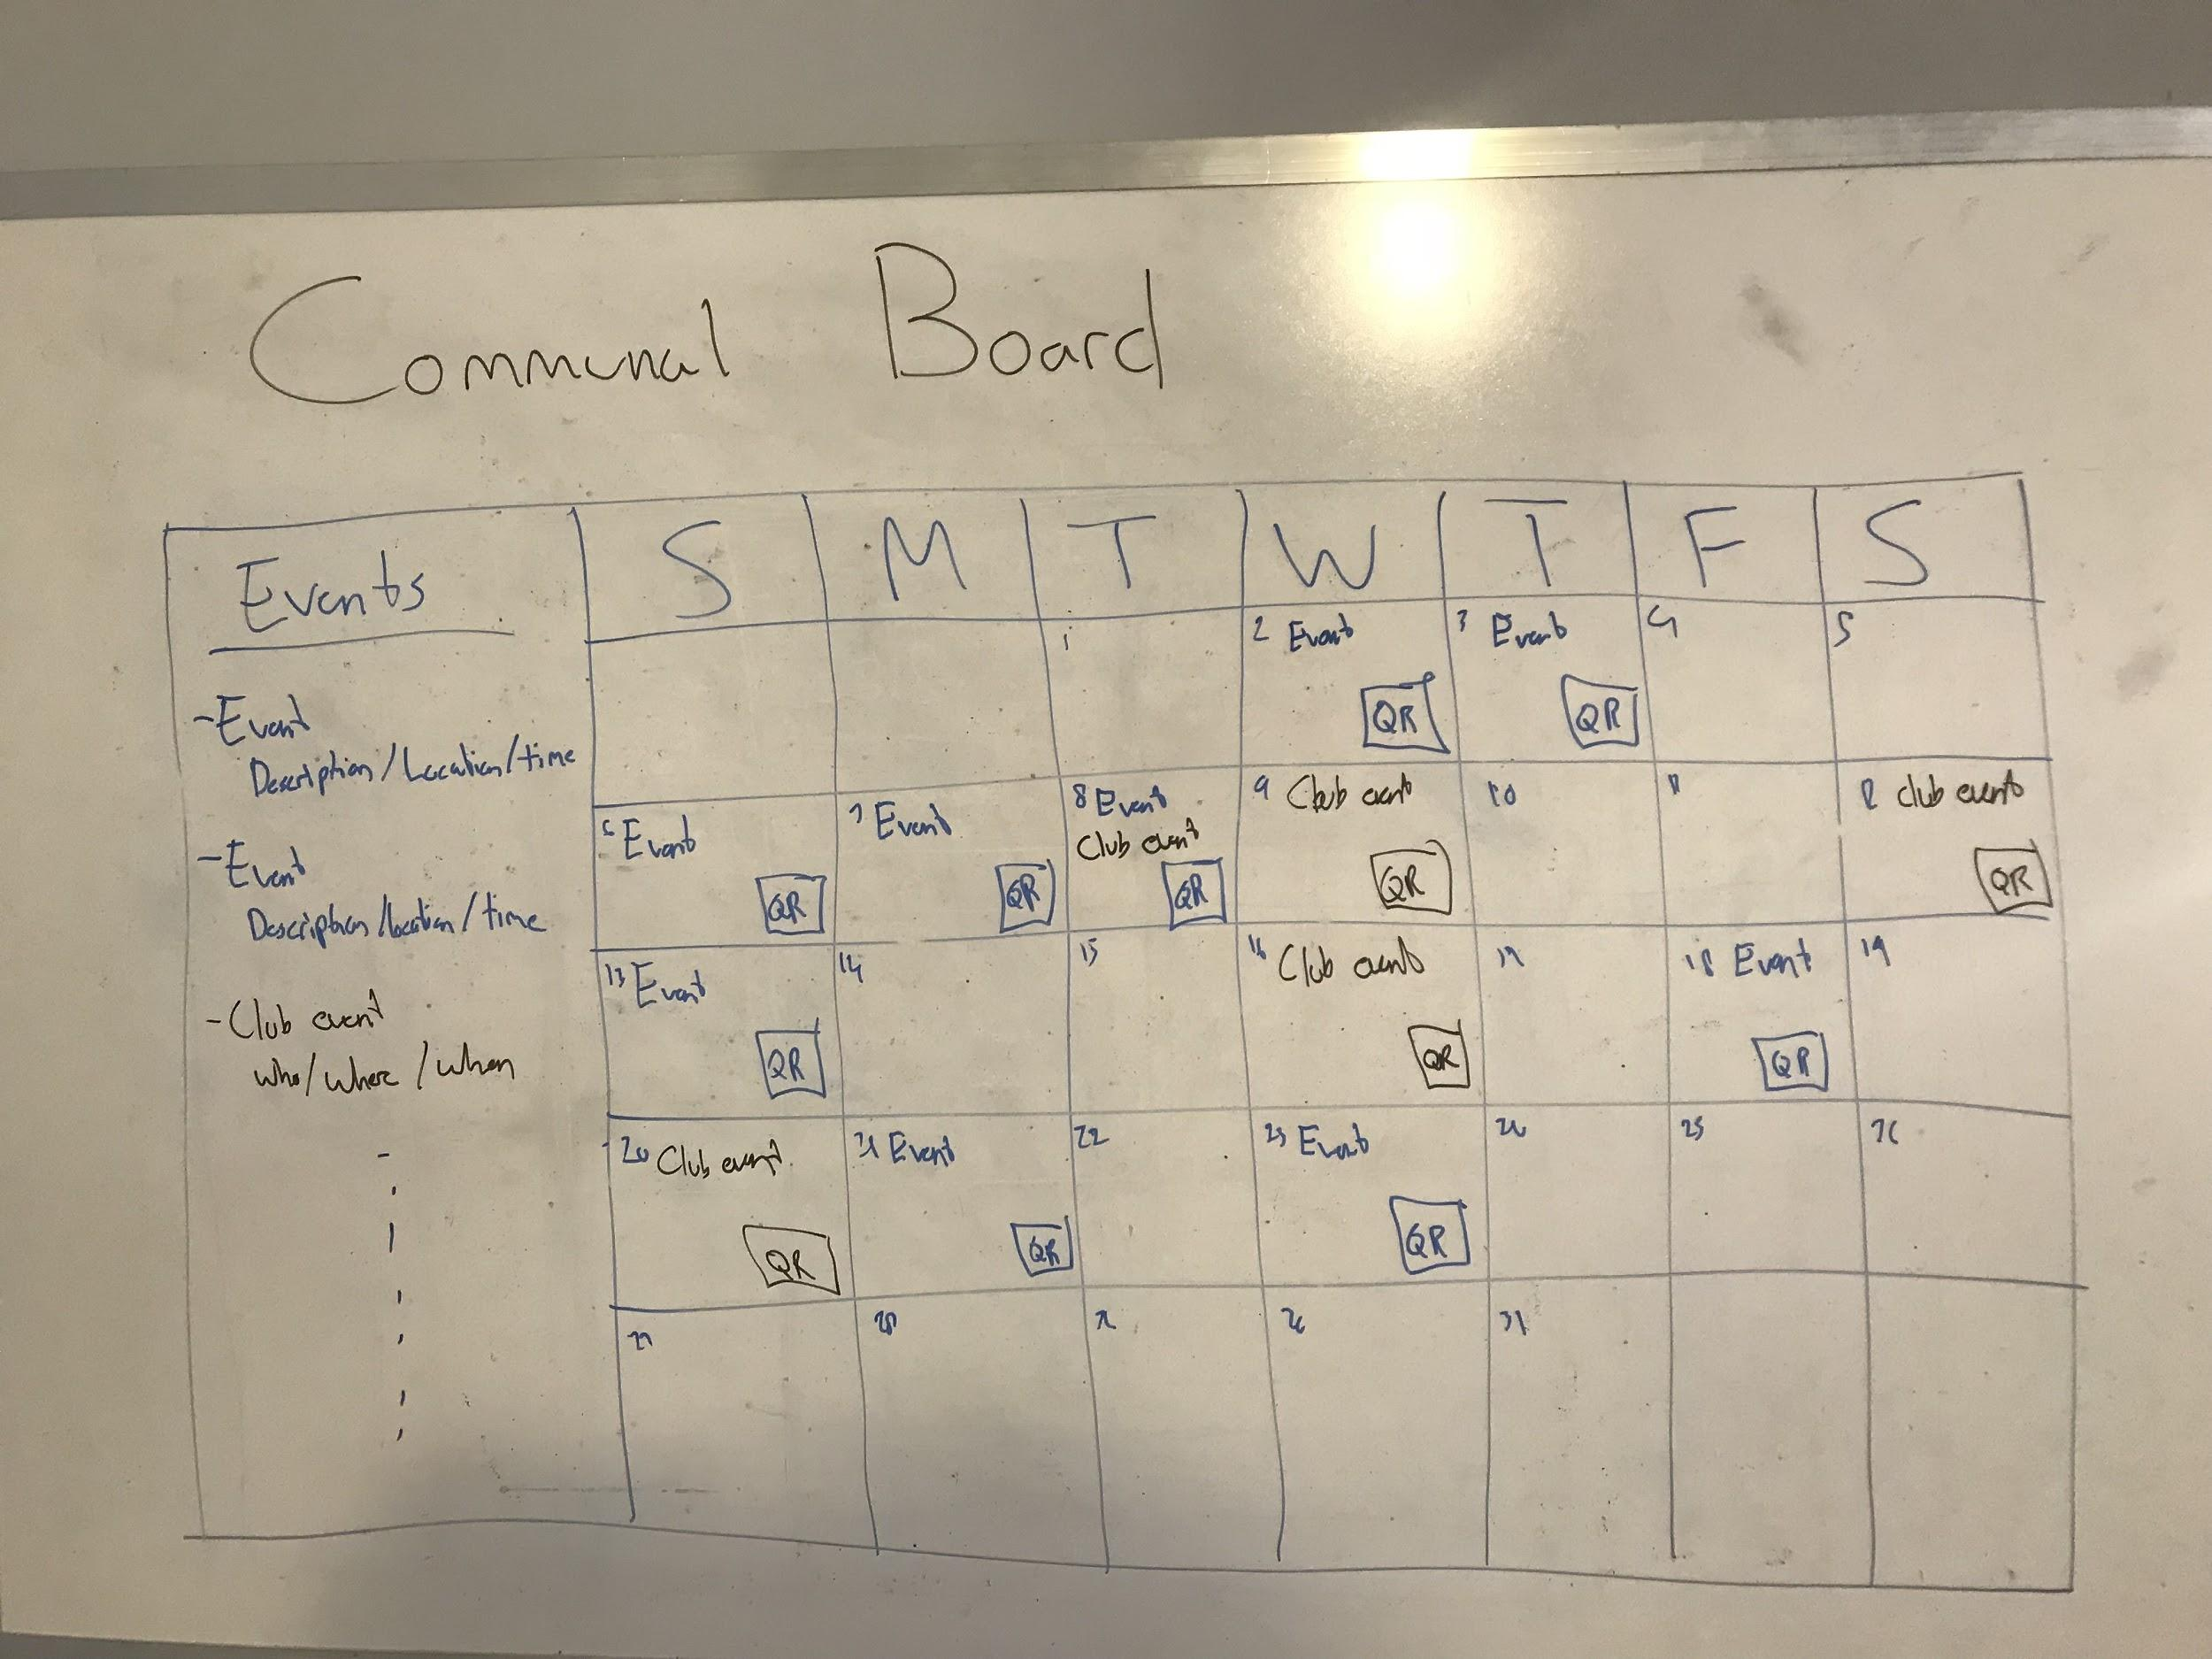 Communal Board
Events
S M T W T F S
- Event
Description/Location/time
- Event
Description/location/time
- Club event
who/where/when
1
2 Event
QR
3 Event
QR
4
5
6 Event
QR
7 Event
QR
8 Event
Club event
QR
9 Club event
QR
10
11
12 club event
QR
13 Event
QR
14
15
16 Club event
QR
17
18 Event
QR
19
20 Club event
QR
21 Event
QR
22
23 Event
QR
24
25
26
27
28
31